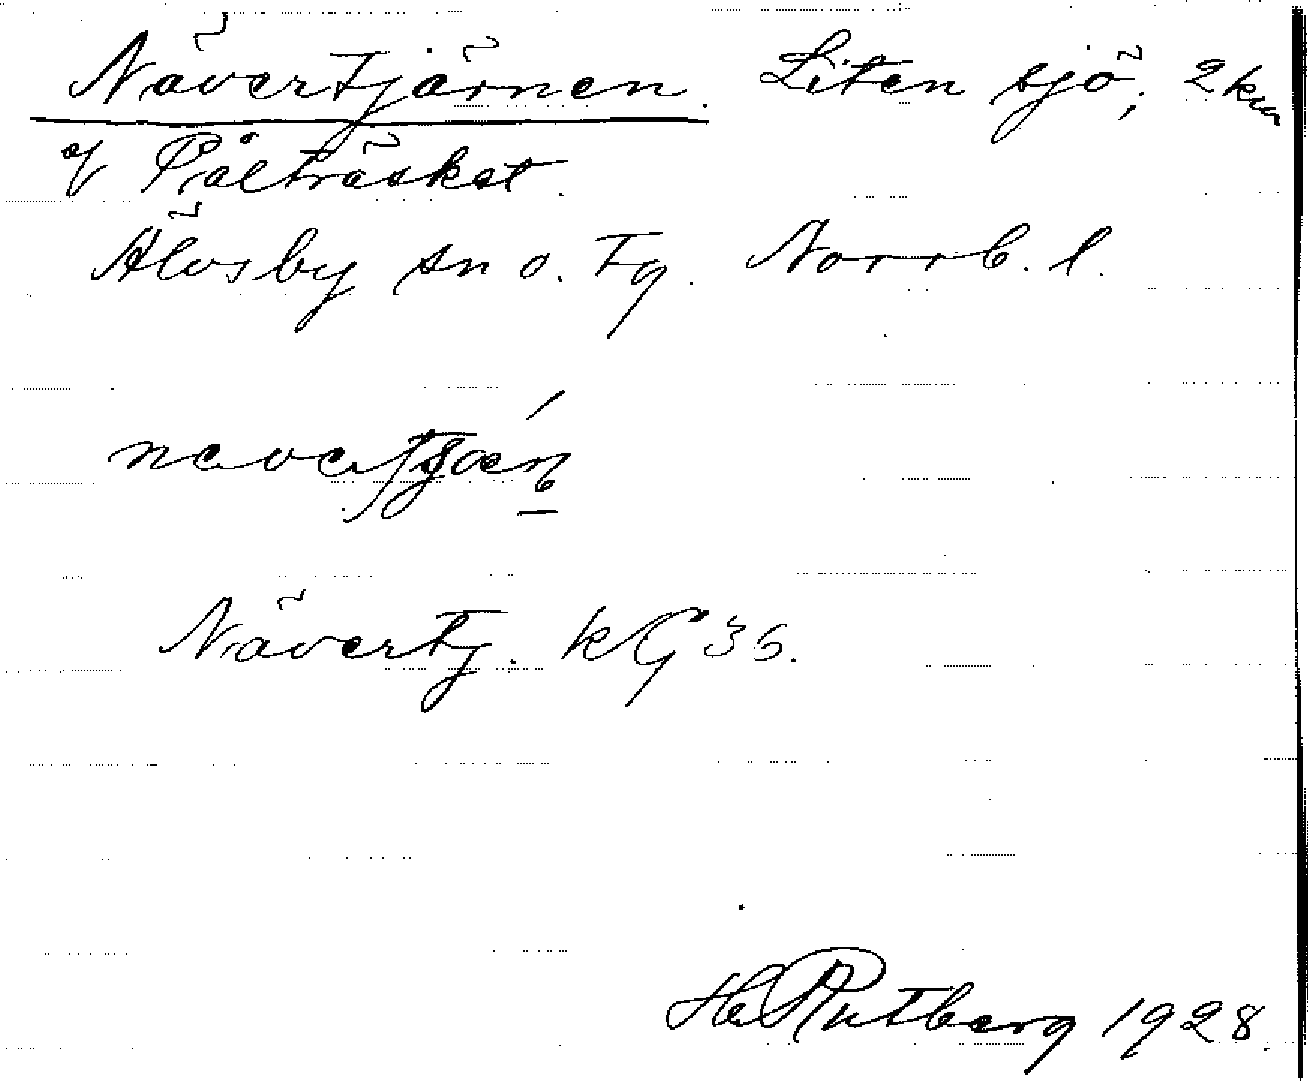 Nävertjärnen. Liten sjö, 2 km
of Pålträsket.
Älvsby sn o. tg. Norrb. l.
Nävertj. kG 35.
Hj. Rutberg 1928.